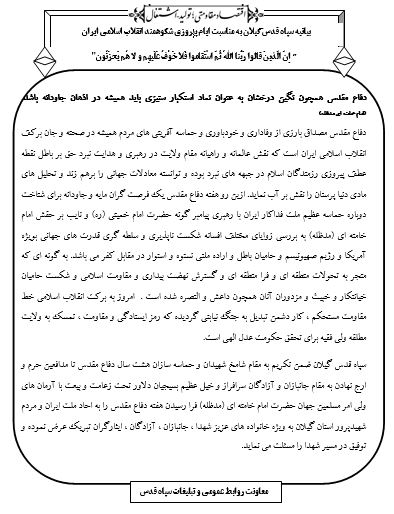 اقتصاد مقاومتی؛ تولید، اشتغال
بیانیه سپاه قدس گیلان به مناسبت ایام پیروزی شکوهمند انقلاب اسلامی ایران
" انّ الّذین قالوا ربّنا اللهُ ثُم استقاموا فَلا خَوفٌ عَلَیهم و لا هُم یَحزنون"
دفاع مقدسی همچون نگین درخشان به عنوان نماد استکبار ستیزی باید همیشه در اذهان جاودانه باشد.
(امام خامنه ای مدظله)
دفاع مقدس مصداق بارزی از وفاداری و خودباوری و حماسه آفرینی های مردم همیشه در صحنه و جان برکف
انقلاب اسلامی ایران است که نقش عالمانه و راهبانه مقام ولایت در رهبری و هدایت نبرد حق بر باطل نقطه
عطف پیروزی رزمندگان اسلام در جبهه های نبرد بوده و توانسته معادلات جهانی را برهم زند و تحلیل های
مادی دنیا پرستان را نقش بر آب نماید. ازین رو هفته دفاع مقدس یک فرصت گران مایه و جاودانه برای شناخت
دوباره حماسه عظیم ملت فداکار ایران با رهبری پیامبر گونه حضرت امام خمینی (ره) و نایب بر حقش امام
خامنه ای (مدظله) به بررسی زوایای مختلف افسانه شکست ناپذیری و سلطه گری قدرت های جهانی بویژه
آمریکا و رژیم صهیونیسم و حامیان باطل و اراده ملتی نستوه و استوار در مقابل کفر می باشد. به گونه ای که
منجر به تحولات منطقه ای و فرا منطقه ای و گسترش نهضت بیداری و مقاومت اسلامی و شکست حامیان
خیانتکار و خبیث و مزدوران آنان همچون داعش و النصره شده است . امروز به برکت انقلاب اسلامی خط
مقاومت مستحکم ، کار دشمن تبدیل به جنگ نیابتی گردیده که رمز ایستادگی و مقاومت ، تمسک به ولایت
مطلقه ولی فقیه برای تحقق حکومت عدل الهی است.
سپاه قدس گیلان ضمن تکریم به مقام شامخ شهیدان و حماسه سازان هشت سال دفاع مقدس تا مدافعین حرم و
ارج نهادن به مقام جانبازان و آزادگان سرافراز و خیل عظیم بسیجیان دلاور تحت زعامت و بیعت با آرمان های
ولی امر مسلمین جهان حضرت امام خامنه ای (مدظله) فرا رسیدن هفته دفاع مقدس را به احاد ملت ایران و مردم
شهیدپرور استان گیلان به ویژه خانواده های عزیز شهدا ، جانبازان ، آزادگان ، ایثارگران تبریک عرض نموده و
توفیق در مسیر شهدا را مسئلت می نماید.
معاونت روابط عمومی و تبلیغات سپاه قدس